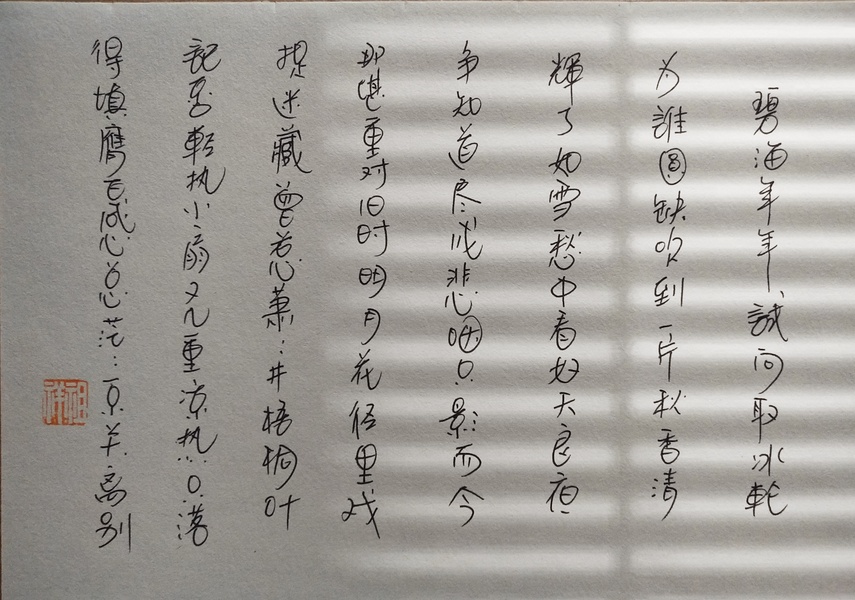 碧海年年試问取冰輪
为誰圓缺吹到一片秋香清
輝了如雪愁中看好天良夜
争知道尽成悲咽只影而今
那堪重对旧时明月花径里戏
捉迷藏曾惹蕭:井梧桐叶
記否輕纨小扇又几重凉热只落
得填膺百感总茫:不关离别